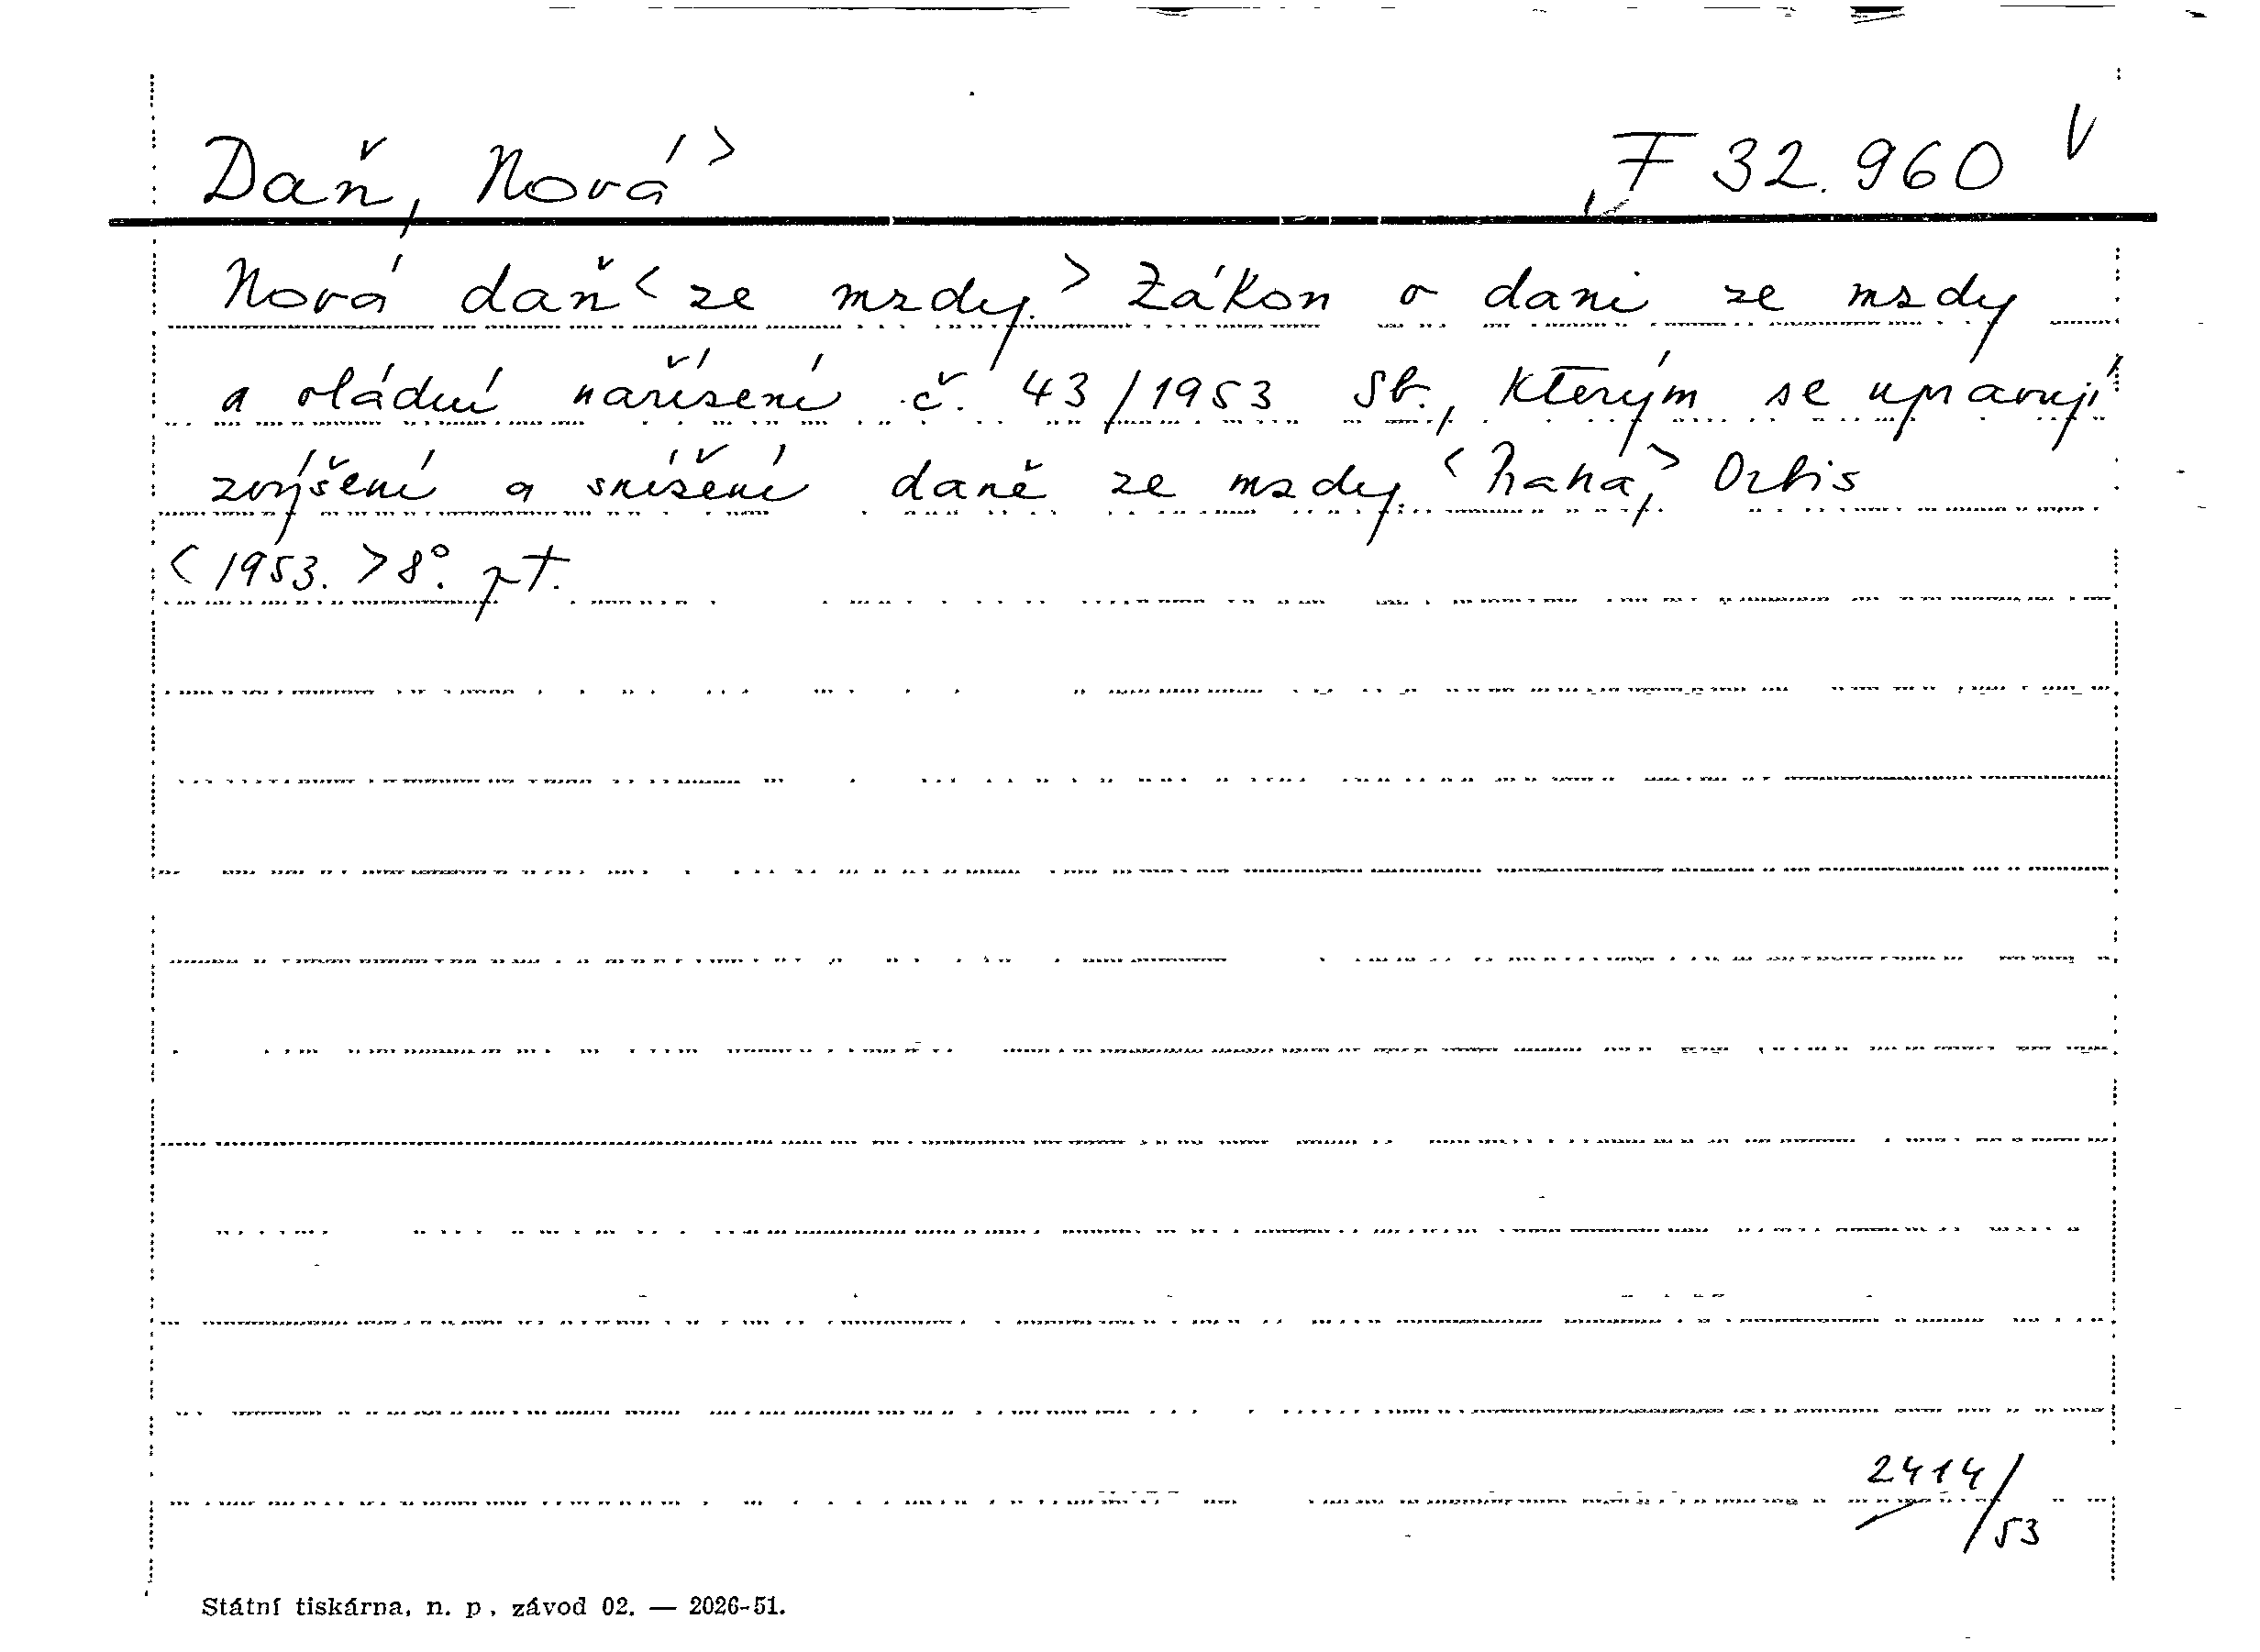 Daň, Nová > F 32.960 V
Nová daň < ze mzdy. > Zákon o dani ze mzdy
a vládní nařízení č. 43/1953 Sb., kterým se upravují
zvýšení a snížení daně ze mzdy. < Praha, > Orbis
< 1953. > 8°. pt.
2414/53
Státní tiskárna, n. p., závod 02. — 2026-51.